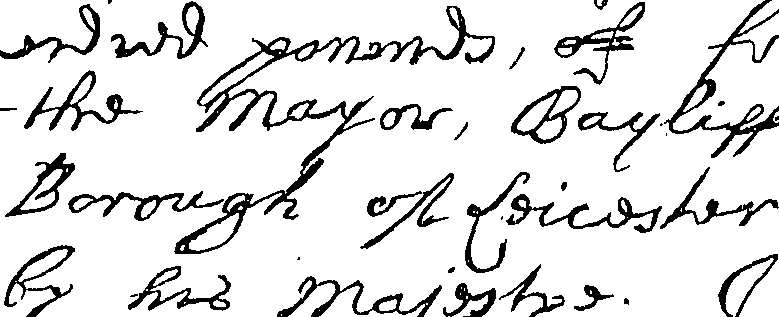 hundred pounds, of
the Mayor, Bayliff
Borough of Leicester
by his Majestye.